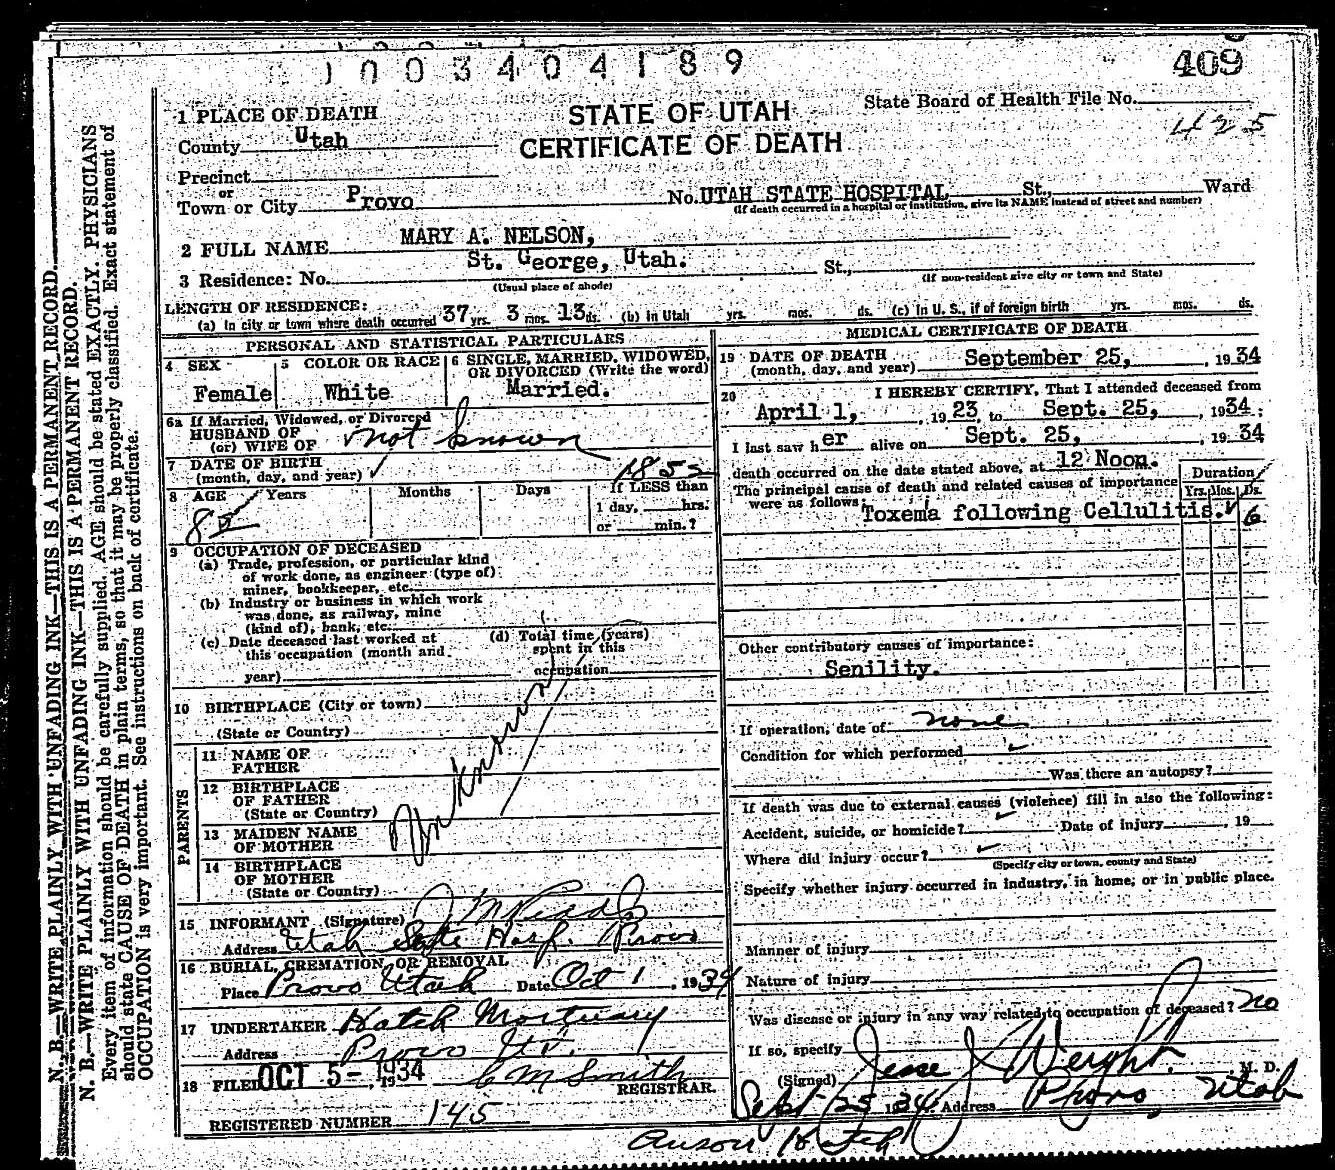 1003404189
409
STATE OF UTAH
CERTIFICATE OF DEATH
State Board of Health File No.
425
1 PLACE OF DEATH
County Utah
Precinct
or
Town or City Provo No. UTAH STATE HOSPITAL St., Ward
(If death occurred in a hospital or institution, give its NAME instead of street and number)
2 FULL NAME MARY A. NELSON,
3 Residence: No. St. George, Utah. St.,
(Usual place of abode) (If non-resident give city or town and State)
LENGTH OF RESIDENCE:
(a) In city or town where death occurred 37 yrs. 3 mos. 13 ds. (b) In Utah yrs. mos. ds. (c) In U. S., if of foreign birth yrs. mos. ds.
PERSONAL AND STATISTICAL PARTICULARS
4 SEX
Female
5 COLOR OR RACE
White
6 SINGLE, MARRIED, WIDOWED,
OR DIVORCED (Write the word)
Married.
6a If Married, Widowed, or Divorced
HUSBAND OF
(or) WIFE OF not known
7 DATE OF BIRTH
(month, day, and year)
8 AGE Years Months Days If LESS than
1 day, hrs.
or min.?
9 OCCUPATION OF DECEASED
(a) Trade, profession, or particular kind
of work done, as engineer (type of)
miner, bookkeeper, etc.
(b) Industry or business in which work
was done, as railway, mine
(kind of), bank, etc.
(c) Date deceased last worked at
this occupation (month and
year)
(d) Total time (years)
spent in this
occupation
10 BIRTHPLACE (City or town)
(State or Country)
PARENTS
11 NAME OF
FATHER
12 BIRTHPLACE
OF FATHER
(State or Country)
13 MAIDEN NAME
OF MOTHER
14 BIRTHPLACE
OF MOTHER
(State or Country)
Unknown
15 INFORMANT (Signature)
Address Utah State Hosp. Provo
16 BURIAL, CREMATION, OR REMOVAL
Place Provo Utah Date Oct 1, 1934
17 UNDERTAKER Hatch Mortuary
Address Provo Ut.
18 FILED OCT 5- 1934 C M Smith
REGISTRAR.
REGISTERED NUMBER 145
MEDICAL CERTIFICATE OF DEATH
19 DATE OF DEATH
(month, day, and year) September 25, 1934
20 I HEREBY CERTIFY, That I attended deceased from
April 1, 1923, to Sept. 25, 1934;
I last saw her alive on Sept. 25, 1934
death occurred on the date stated above, at 12 Noon.
The principal cause of death and related causes of importance
were as follows:
Duration
Yrs. Mos. Ds.
Toxema following Cellulitis. 6
Other contributory causes of importance:
Senility.
If operation, date of none
Condition for which performed
Was there an autopsy?
If death was due to external causes (violence) fill in also the following:
Accident, suicide, or homicide? Date of injury , 19
Where did injury occur?
(Specify city or town, county and State)
Specify whether injury occurred in industry, in home, or in public place.
Manner of injury
Nature of injury
Was disease or injury in any way related to occupation of deceased? no
If so, specify
(Signed) Jesse J Weight. M. D.
Sept 25 1934. Address Provo, Utah
Anson Hatch
N. B.—WRITE PLAINLY WITH UNFADING INK—THIS IS A PERMANENT RECORD.
N. B.—WRITE PLAINLY WITH UNFADING INK—THIS IS A PERMANENT RECORD.
Every item of information should be carefully supplied. AGE should be stated EXACTLY. PHYSICIANS
should state CAUSE OF DEATH in plain terms, so that it may be properly classified. Exact statement of
OCCUPATION is very important. See instructions on back of certificate.